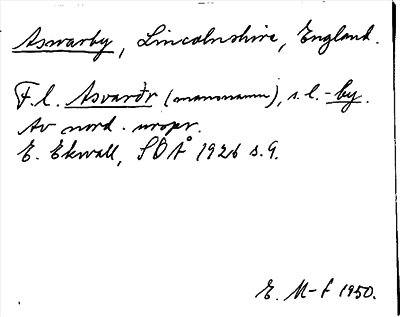 Aswarby, Lincolnshire, England.
F.l. Asvarðr (mansnamn), s.l. -by.
Av nord. urspr.
E. Ekwall, SOÅ 1926 s. 9.
E. M-f 1950.